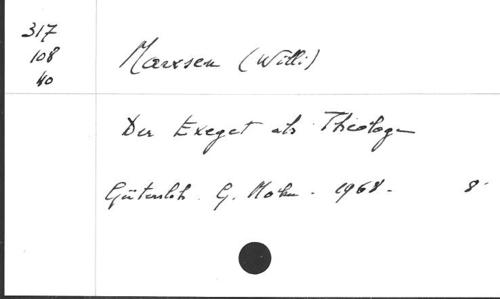 317
108
40
Marxsen (Willi)
Der Exeget als Theologe
Gütersloh. G. Mohn. 1968. 8°